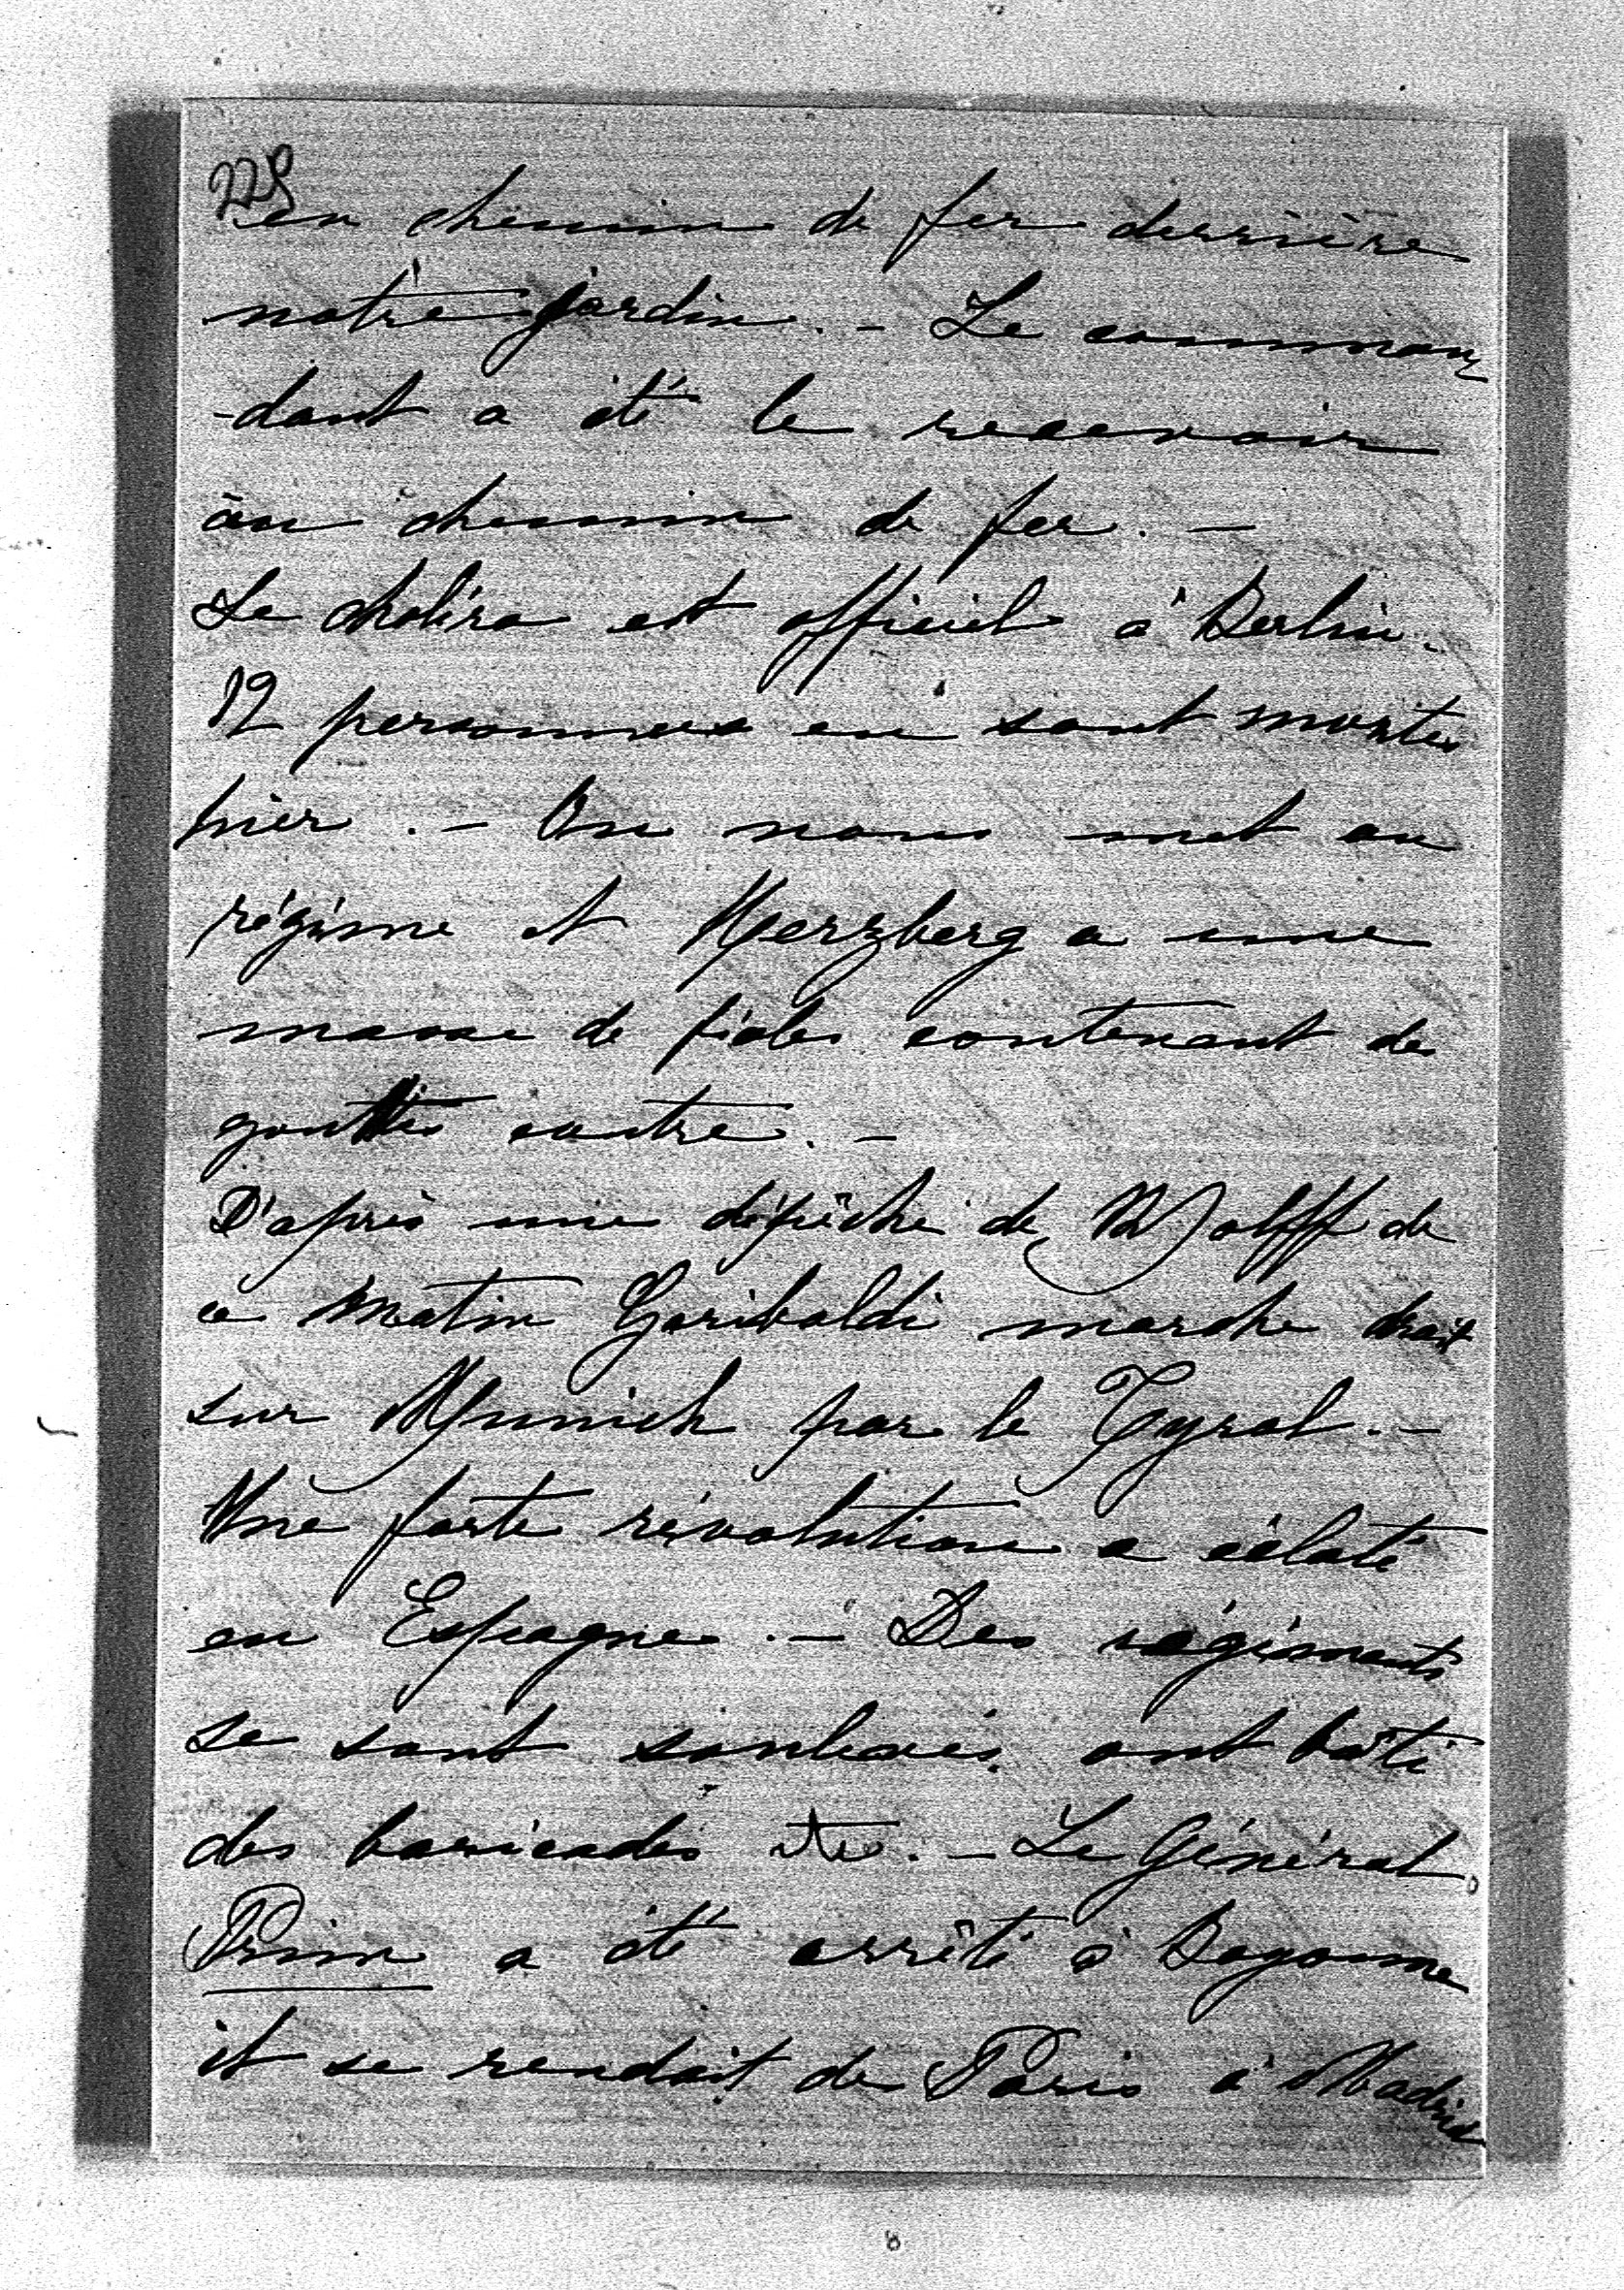 228
en chemin de fer derrière
notre jardin. - Le comman
-dant a été le recevoir
au chemin de fer. -
Le choléra est officiel à Berlin.
12 personnes en sont mortes
hier. - On nous met au
régime et Herzberg a une
masse de fioles contenant des
gouttes contre. -
D'après une dépêche de Wolff de
ce matin Garibaldi marche droit
sur Munich par le Tyrol. -
Une forte révolution a éclaté
en Espagne. - Des régiments
se sont soulevés, ont bâti
des baricades etc. - Le Général
Prim a été arrêté à Bayonne
il se rendait de Paris à Madrid